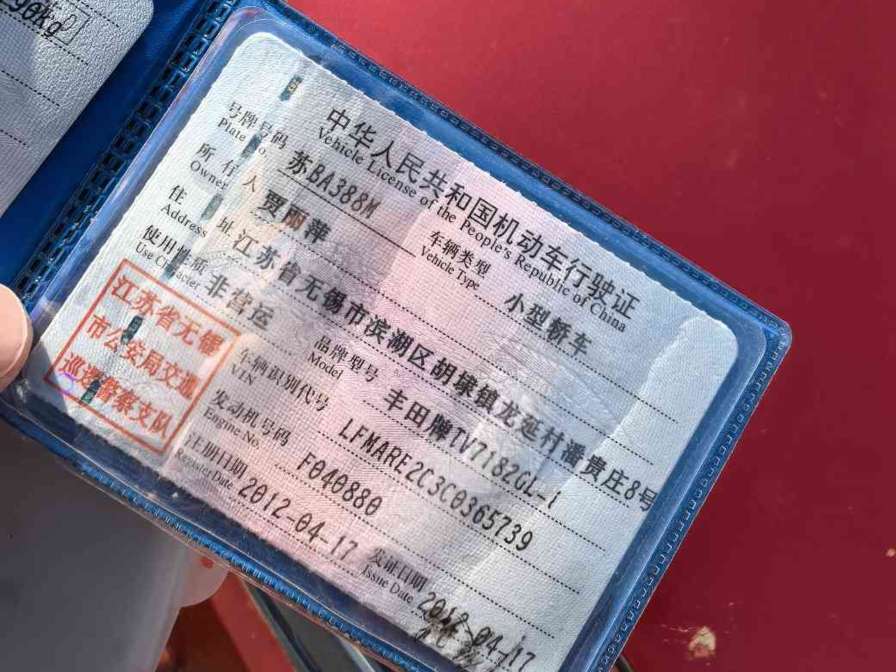 90kg
中华人民共和国机动车行驶证
Vehicle License of the People's Republic of China
号牌号码 苏BA388M 车辆类型 小型轿车
Plate No. Vehicle Type
所有人 贾丽萍
Owner
住址 江苏省无锡市滨湖区胡埭镇龙延村潘贵庄8号
Address
使用性质 非营运 品牌型号 丰田牌TV7182GL-i
Use Character Model
江苏省无锡
市公安局交通
巡逻警察支队
车辆识别代号 LFMARE2C3C0365739
VIN
发动机号码 F040880
Engine No.
注册日期 2012-04-17 发证日期 2012-04-17
Register Date Issue Date